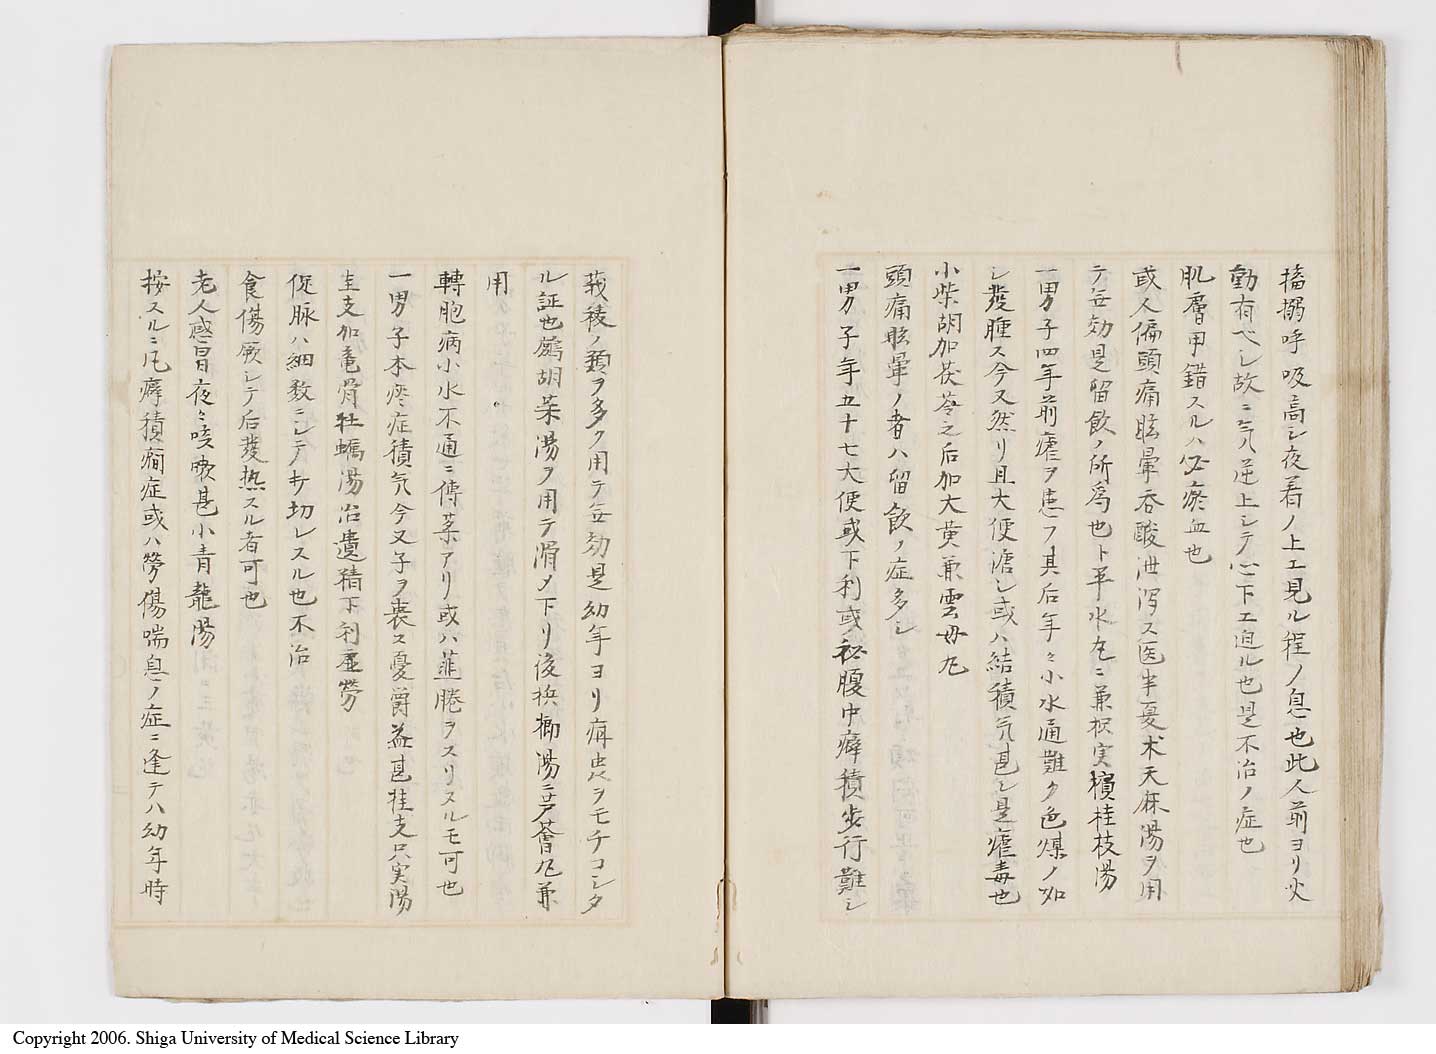 搐搦呼吸高シ夜着ノ上エ見ル程ノ息也此人前ヨリ火
動有ベシ故ニ気逆上シテ心下エ迫ル也是不治ノ症也
肌膚甲錯スルハ必瘀血也
或人偏頭痛眩暈呑酸泄瀉ス医半夏朮天麻湯ヲ用
テ毎効是留飲ノ所為也ト平水丸ニ兼枳実檳桂枝湯
一男子四年前瘧ヲ患フ其后年々小水通難ク色煤ノ如
シ発腫ス今又然リ且大便溏シ或ハ結積気甚シ是瘧毒也
小柴胡加茯苓之后加大黄兼雲母丸
頭痛眩暈ノ者ハ留飲ノ症多シ
一男子年五十七大便或下利或秘腹中癖積歩行難シ
莪稜ノ類ヲ多ク用テ毎効是幼年ヨリ疳虫ヲモチコシタ
ル証也鷓胡菜湯ヲ用テ滑メ下リ後梹榔湯ニ芦薈丸兼
用
轉胞病小水不通ニ傳薬アリ或ハ韮臍ヲスリスルモ可也
一男子本疼症積気今又子ヲ喪ス憂欝益甚桂支只実湯
圭支加竜骨牡蠣湯治遺精下利虚労
促脉ハ細数ニシテキ切レスル也不治
食傷厥シテ后発熱スル者可也
老人感冒夜々咳嗽甚小青龍湯
按スルニ凡癖積癇症或ハ労傷喘息ノ症ニ逢テハ幼年時
Copyright 2006. Shiga University of Medical Science Library